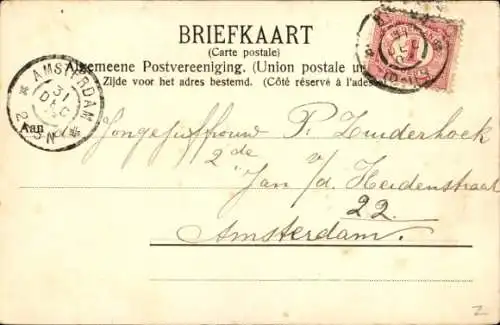 BRIEFKAART
(Carte postale)
Algemeene Postvereeniging. (Union postale un
Zijde voor het adres bestemd. (Côté réservé à l'adres
AMSTERDAM
31
DEC
2-3N
Aan de Jongejufvrouw P. Zuiderhoek
2de v/d. Heidenstraat
Jan
22.
Amsterdam.
2